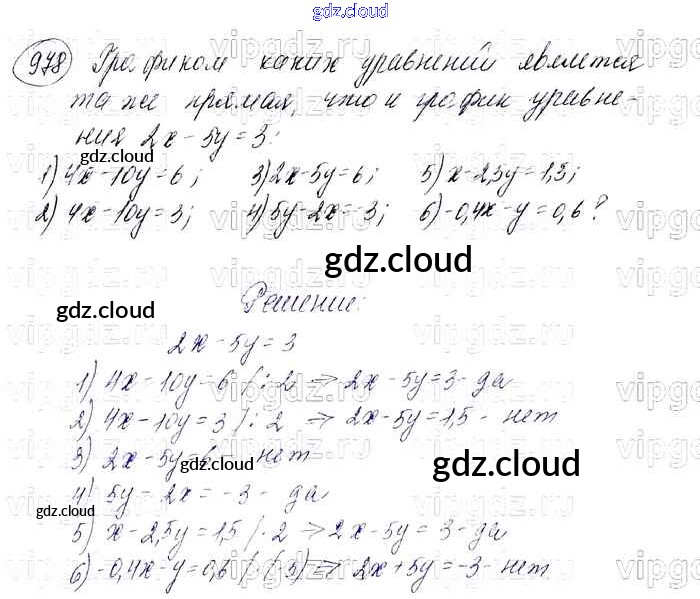 gdz.cloud
978 Графиком каких уравнений является
та же прямая, что и график уравне-
ния 2x-5y=3:
gdz.cloud
1) 4x-10y=6; 3) 2x-5y=6; 5) x-2,5y=1,5;
2) 4x-10y=3; 4) 5y-2x=-3; 6) -0,4x-y=0,6?
gdz.cloud
gdz.cloud
Решение:
2x-5y=3
1) 4x-10y=6 /:2 => 2x-5y=3 - да
2) 4x-10y=3 /:2 => 2x-5y=1,5 - нет
3) 2x-5y=6 - нет
gdz.cloud
gdz.cloud
4) 5y-2x=-3 - да
gdz.cloud
5) x-2,5y=1,5 /·2 => 2x-5y=3 - да
6) -0,4x-y=0,6 /·(-5) => 2x+5y=-3 - нет